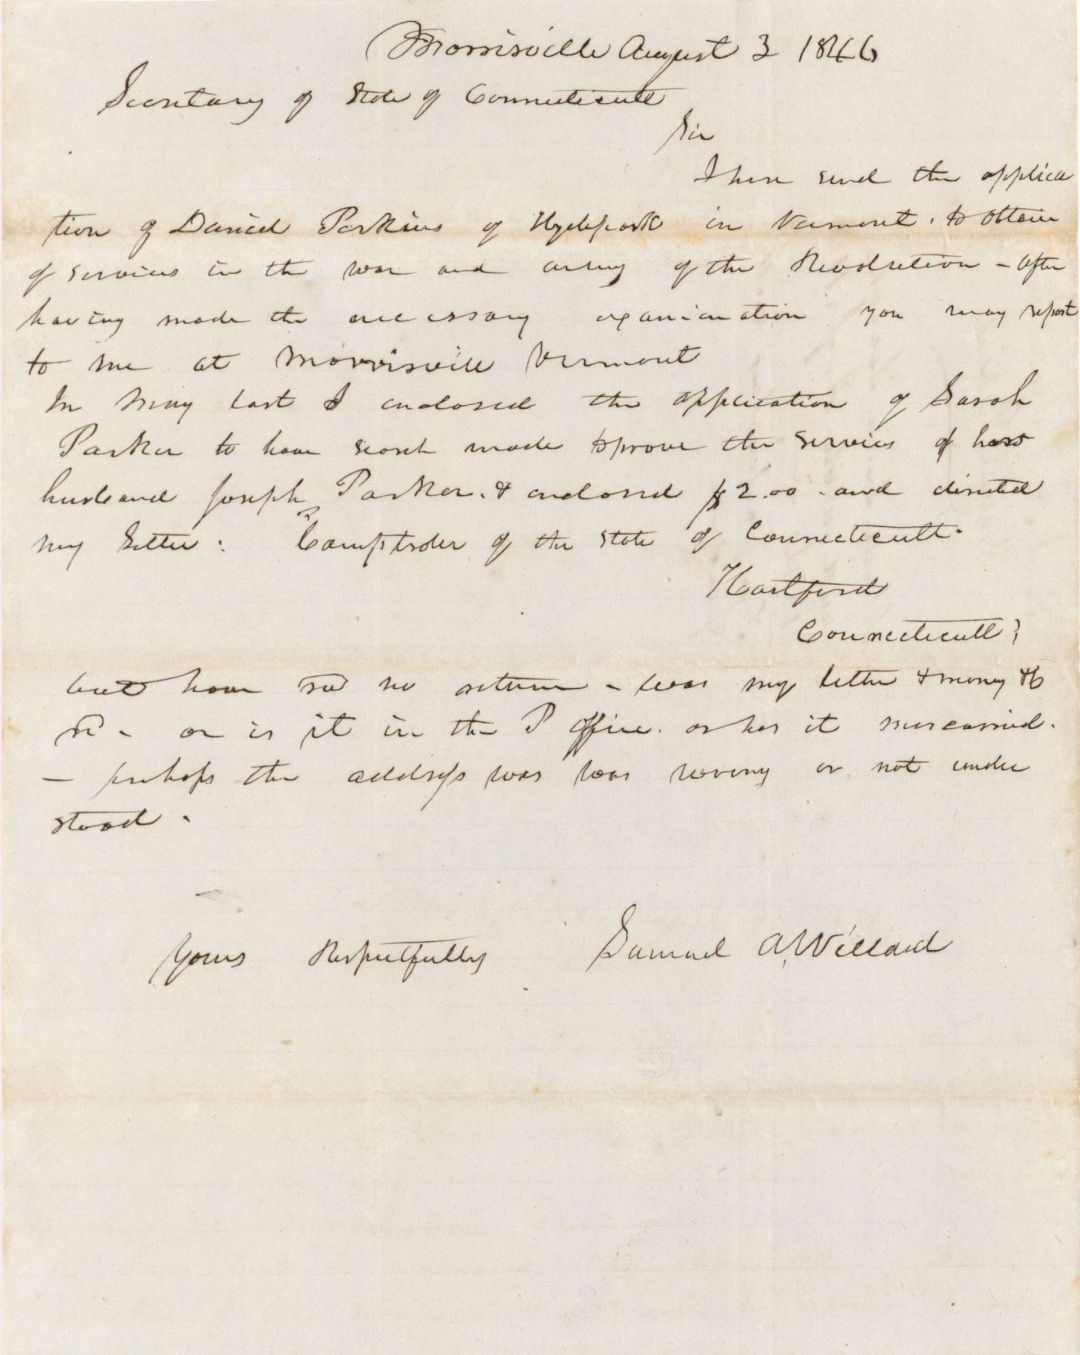 Morrisville August 3 1846
Secretary of State of Connecticutt
Sir
I here send the applica
tion of Daniel Perkins of Hydepark in Vermont. to obtain
of services in the war and army of the Revolution - After
having made the necessary examination you may report
to me at Morrisville Vermont
In May last I enclosed the application of Sarah
Parker to have search made to prove the services of her
husband Joseph Parker. & enclosed $2.00. and directed
my Letter: Comptroler of the State of Connecticutt.
Hartford
Connecticutt?
but have recd no return - was my letter & money
recd - or is it in the P office. or has it miscarried.
- perhaps the address was was wrong or not under
stood.
Yours Respectfully Samuel A. Willard